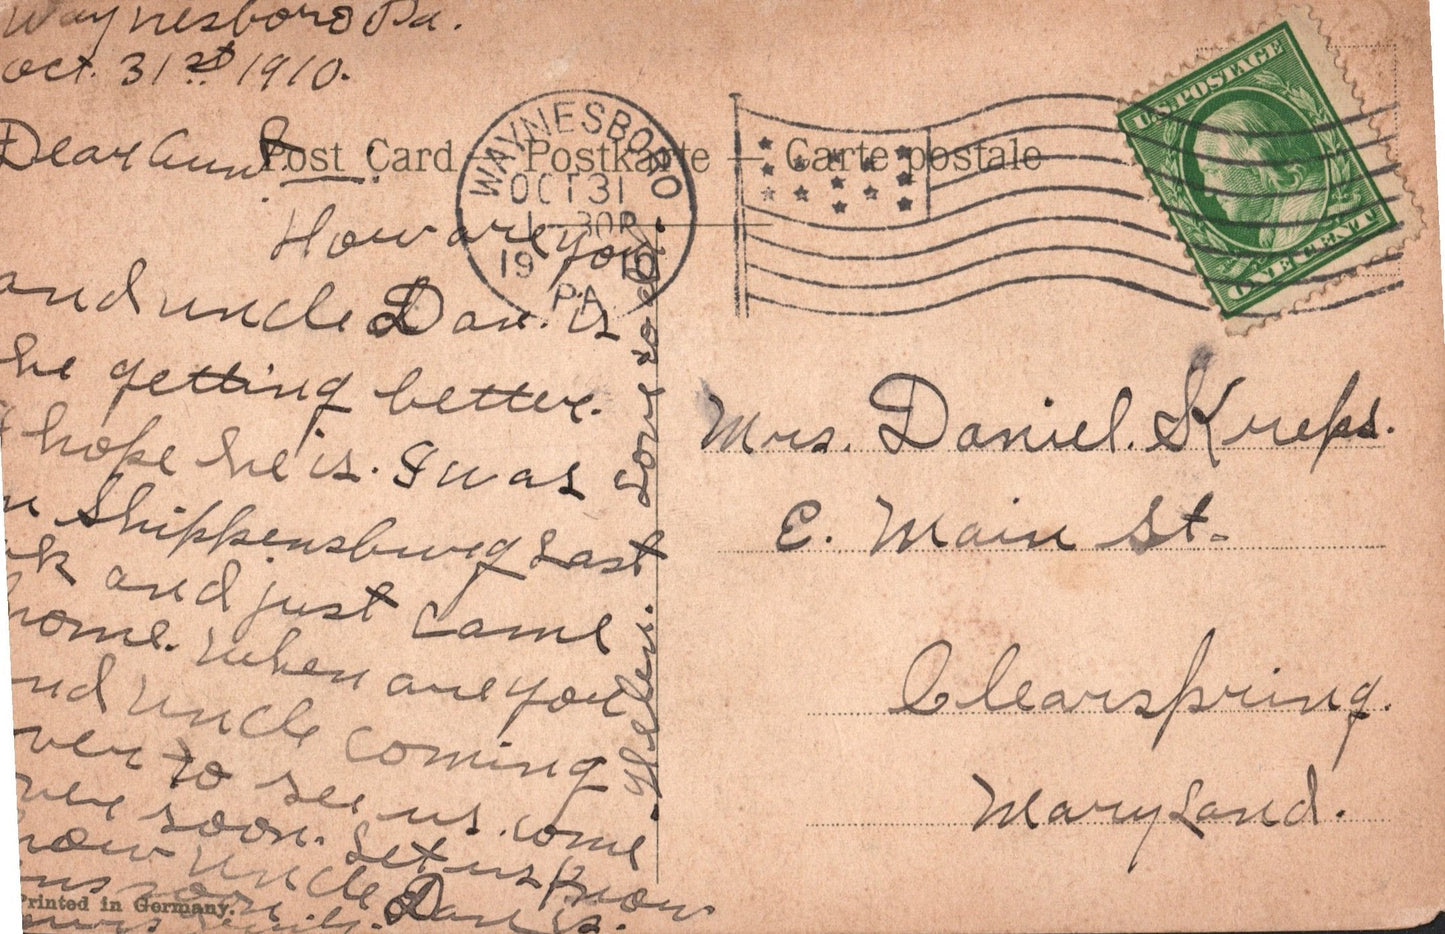 Waynesboro Pa.
Oct. 31st 1910.
Dear Aunt
How are you
and uncle Dan. is
he getting better.
I hope he is. I was
Shippensburg Last
and just came
home. When are you
and uncle coming
over to see us. come
over soon. Let us know
how uncle Dan is.
Love to all
Helen.
Post Card — Postkarte — Carte postale
WAYNESBORO
OCT 31
1 — 30 P
1910
PA.
U.S. POSTAGE
ONE CENT
Mrs. Daniel. Kreps.
E. Main St.
Clearspring.
Maryland.
Printed in Germany.